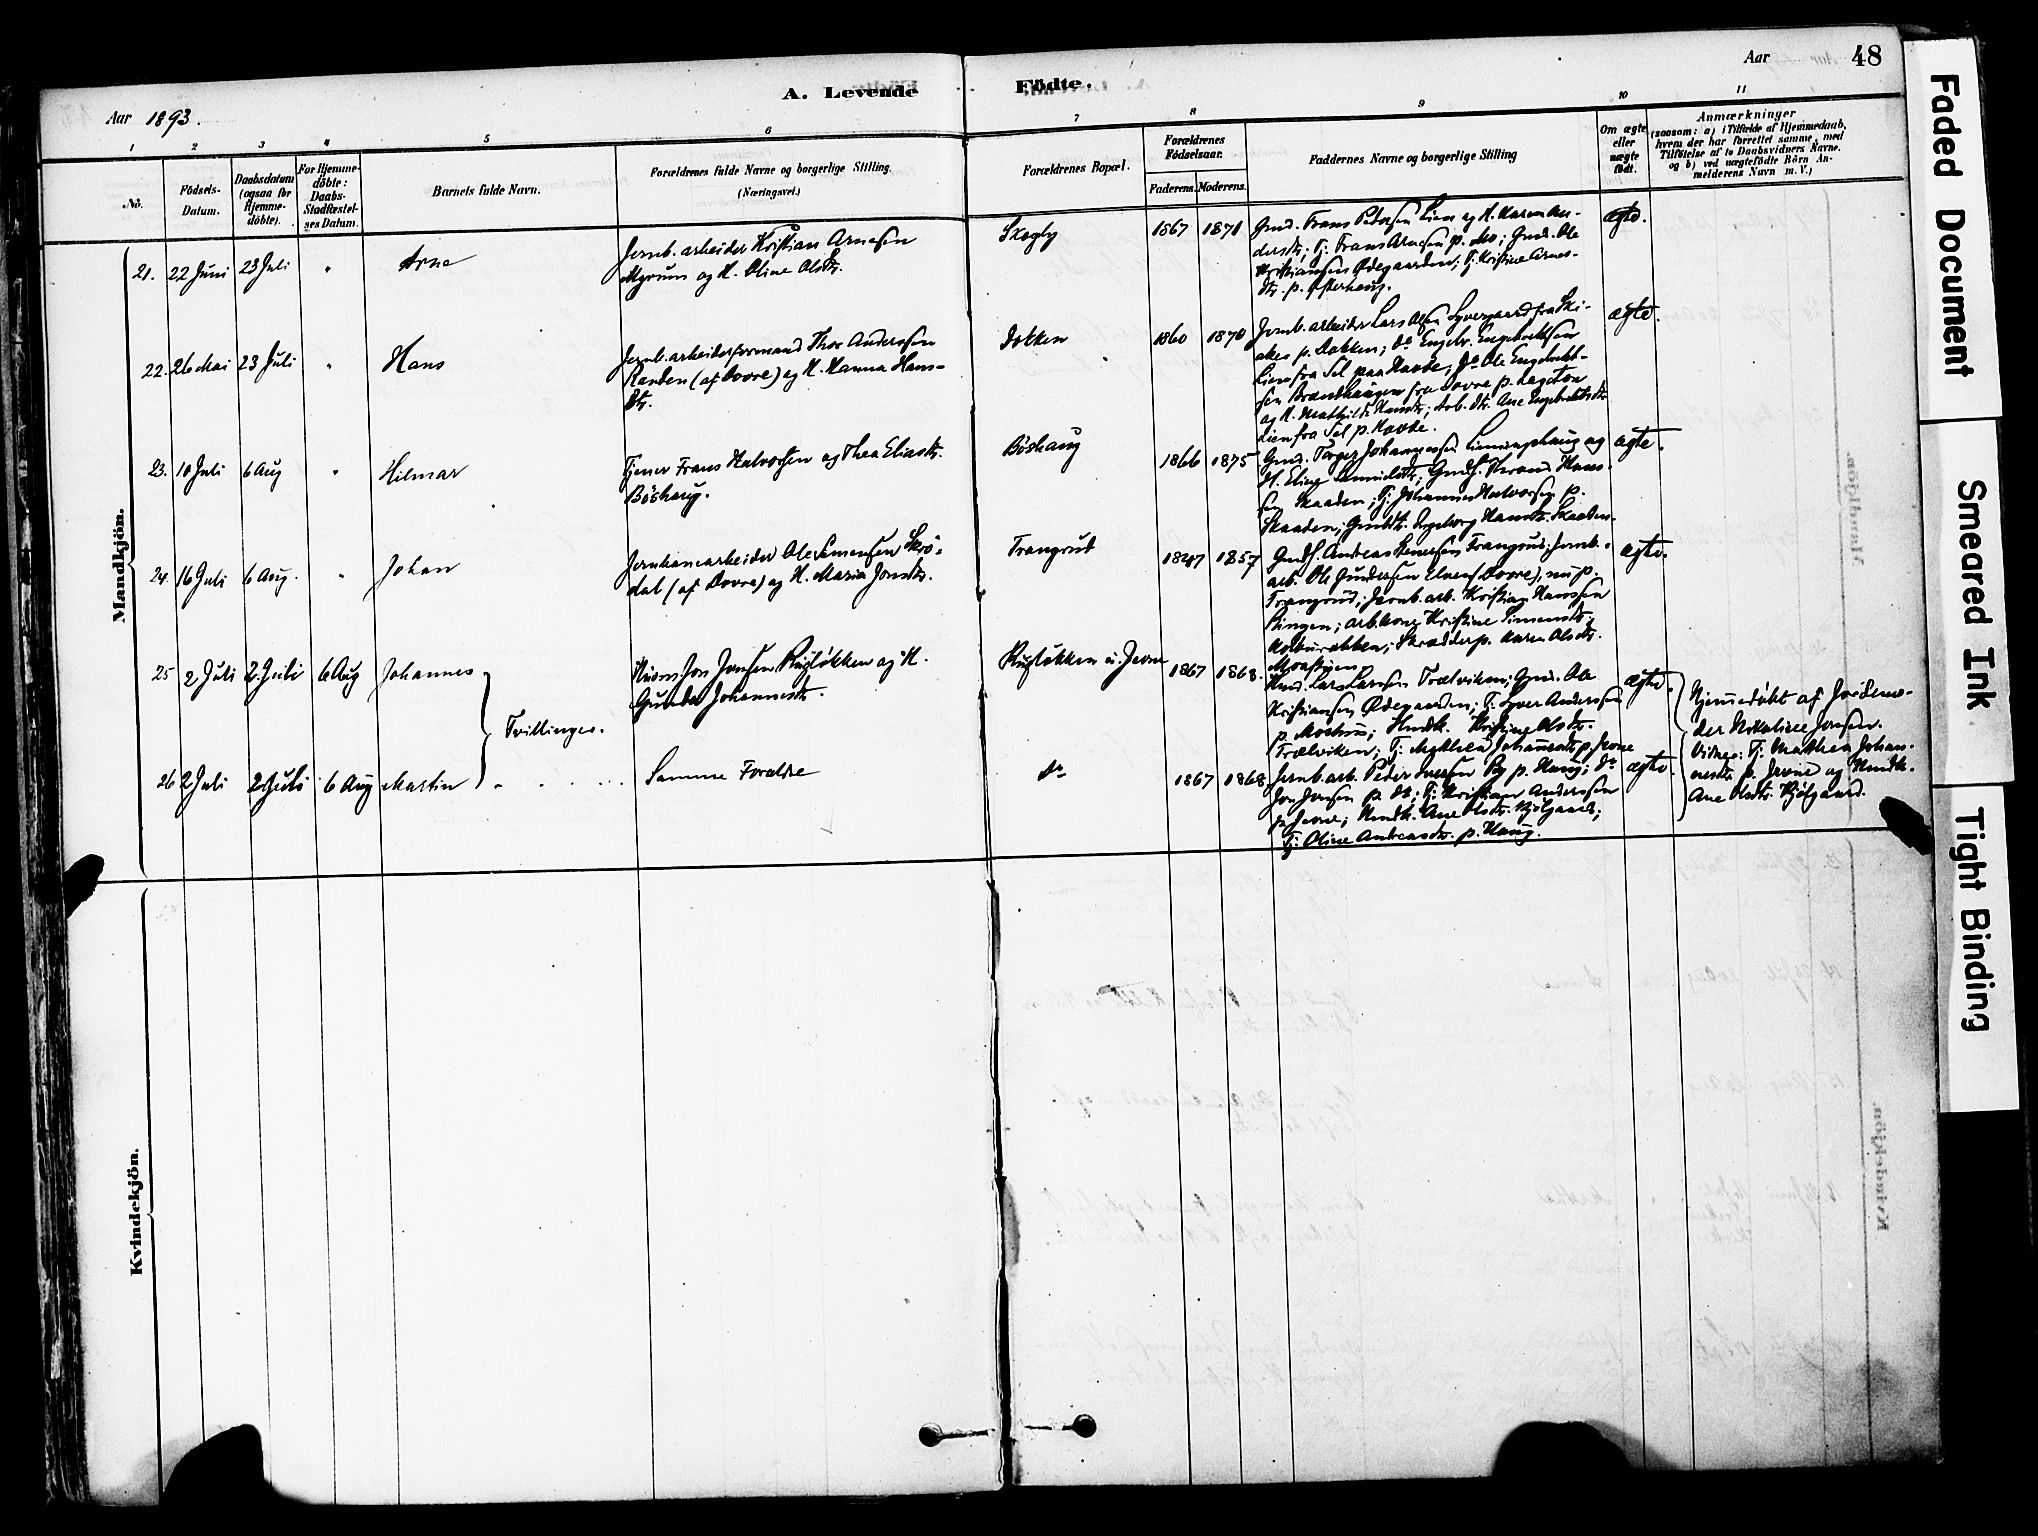 Aar 1893.
A. Levende Födte.
Aar 48
1 2 3 4 5 6 7 8 9 10 11
No.
Födsels-Datum.
Daabsdatum (ogsaa for Hjemmedöbte).
For Hjemmedöbte: Daabs-Stadfæstelses Datum.
Barnets fulde Navn.
Forældrenes fulde Navne og borgerlige Stilling.
(Næringsvei.)
Forældrenes Bopæl.
Forældrenes Födselsaar.
Faderens. Moderens.
Faddernes Navne og borgerlige Stilling
Om ægte eller uægte födt.
Anmærkninger
(saasom: a) i Tilfælde af Hjemmedaab, hvem der har forrettet samme, med Tilföielse af to Daabsvidners Navne. og b) ved uægtefödte Börn Anmelderens Navn m. V.)
Mandkjön.
21. 22 Juni 23 Juli " Arne
Jernb. arbeider Kristian Arnesen
Myrum og H. Oline Olsdtr.
Skogly 1867 1871
Gmd. Frans Pedersen Lien og H. Maren An-
dersdtr; Tj. Frans Arnesen p. Mo; Gmd. Ole
Kristiansen Ødegaarden; Tj. Kristine Arnes-
dtr. p. Østerhaug.
ægte.
22. 26 Mai 23 Juli " Hans
Jernb. arbeiderformand Thor Anderssen
Randen (af Dovre) og H. Hanna Hans-
dtr.
Dokken 1860 1870
Jernb. arbeider Lars Olsen Syvergaard fra Ski-
aker p. Dokken; Do Engebr. Engebretsen
Lien fra Sel paa Hovde; Do Ole Engebret-
sen Brændhaugen fra Dovre p.
og H. Mathilde ; Arb. dtr. Ane Engebretsdtr.
Lien fra Sel p. Hovde.
ægte.
23. 10 Juli 6 Aug " Hilmar
Tjener Frans Halvorsen og Thea Eliasdtr.
Böshaug.
Böshaug 1866 1875
Gmd. Torger Johannessen Linningshaug og
H. Eline Samuelsdtr; Gmds. Thrond Hans-
sen Skaaden; Tj. Johannes Halvorsen p.
Skaaden; Gmdtr. Ingeborg Hansdtr. Skaaden.
ægte.
24. 16 Juli 6 Aug. " Johan
Jernbanearbeider Ole Simensen Skrö-
dal (af Dovre) og H. Maria Jonsdtr.
Trangrud 1847 1857
Gmds. Andreas Trangrud; Jernb.-
arb. Ole Gundersen (Dovre), nu p.
Trangrud; Jernb. arb. Kristian Hanssen
Ringen; arb. kone Kristine Simensdtr.
; Skrædderp. Karen Olsdtr.
Moastuen.
ægte.
25 2 Juli 2 Juli 6 Aug Johannes
Tvillinger.
Husm. Jon Jonsen Rugløkken og H.
Gunda Johannesdtr.
Rugløkken u. Jevne 1867 1868.
Hmd. Lars Larssen Trætviken; Gmd. Ole
Kristiansen Ødegaarden; Tj. Syver Anderssen
p. Moshus; Hmdk. Kristine Olsdtr.
Trætviken; Tj. Mathea Johannesdtr. p. Jevne
ægte.
Hjemmedöbt af Jordemo-
der Nikoline Jonsen.
Vidner: Tj. Mathea Johan-
nesdtr. p. Jevne og Hmdk.
Ane Olsdtr. Kjølgaard.
26 2 Juli 2 Juli 6 Aug Martin
Samme Forældre
do 1867 1868
Jernb. arb. Peder By p. Haug; Do
Jon Jonsen p. do; Tj. Kristian Anderssen
p. Jevne; Hmdk. Ane Olsdtr. Kjølgaard;
Tj. Oline Andreasdtr. p. Haug.
ægte.
Kvindekjön.
Faded Document
Smeared Ink
Tight Binding